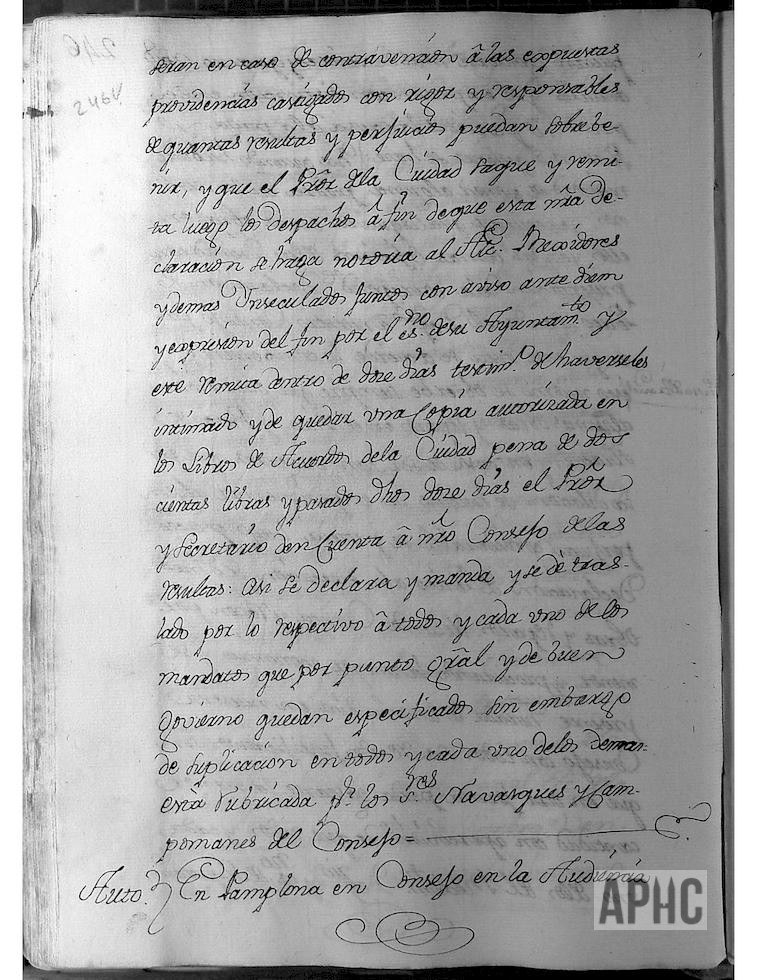 246
246v
seran en caso de contravención â las expuestas
providencias castigados con rigor y responsables
de quantas resultas y perjuicios puedan sobrebe-
nir, y que el Pror. dela Ciudad saque y remi-
ta luego los despachos â fin de que esta nra de-
claración se haga notoria al Alc.e Rexidores
y demas Inseculados juntos con aviso ante diem
y expresion del fin por el es.no de su Ayuntam.to y
este remita dentro de doze dias testim.o de haverseles
intimado y de quedar una Copia autorizada en
los Libros de Acuerdos dela Ciudad pena de dos
cientas libras y pasados dhos doze dias el Pror
y Secretario den Cuenta â nro Consejo de las
resultas: asi se declara y manda y se dè tras-
lado por lo respectivo â todos y cada uno de los
mandatos que por punto gral y de buen
Govierno quedan especificados sin embargo
de suplicación en todos y cada uno delos demas:
está rubricada pr. los S.res Navasques y Cam-
pomanes del Consejo=
Auto. En Pamplona en Consejo en la Audiencia
APHC